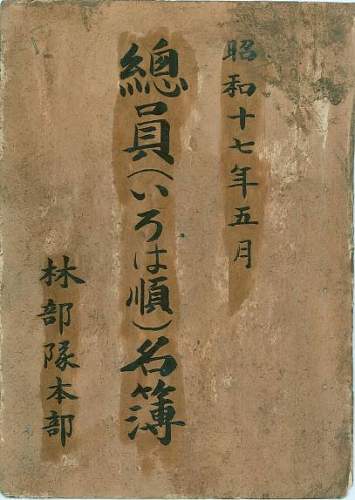 昭和十七年五月
總員(いろは順)名簿
林部隊本部